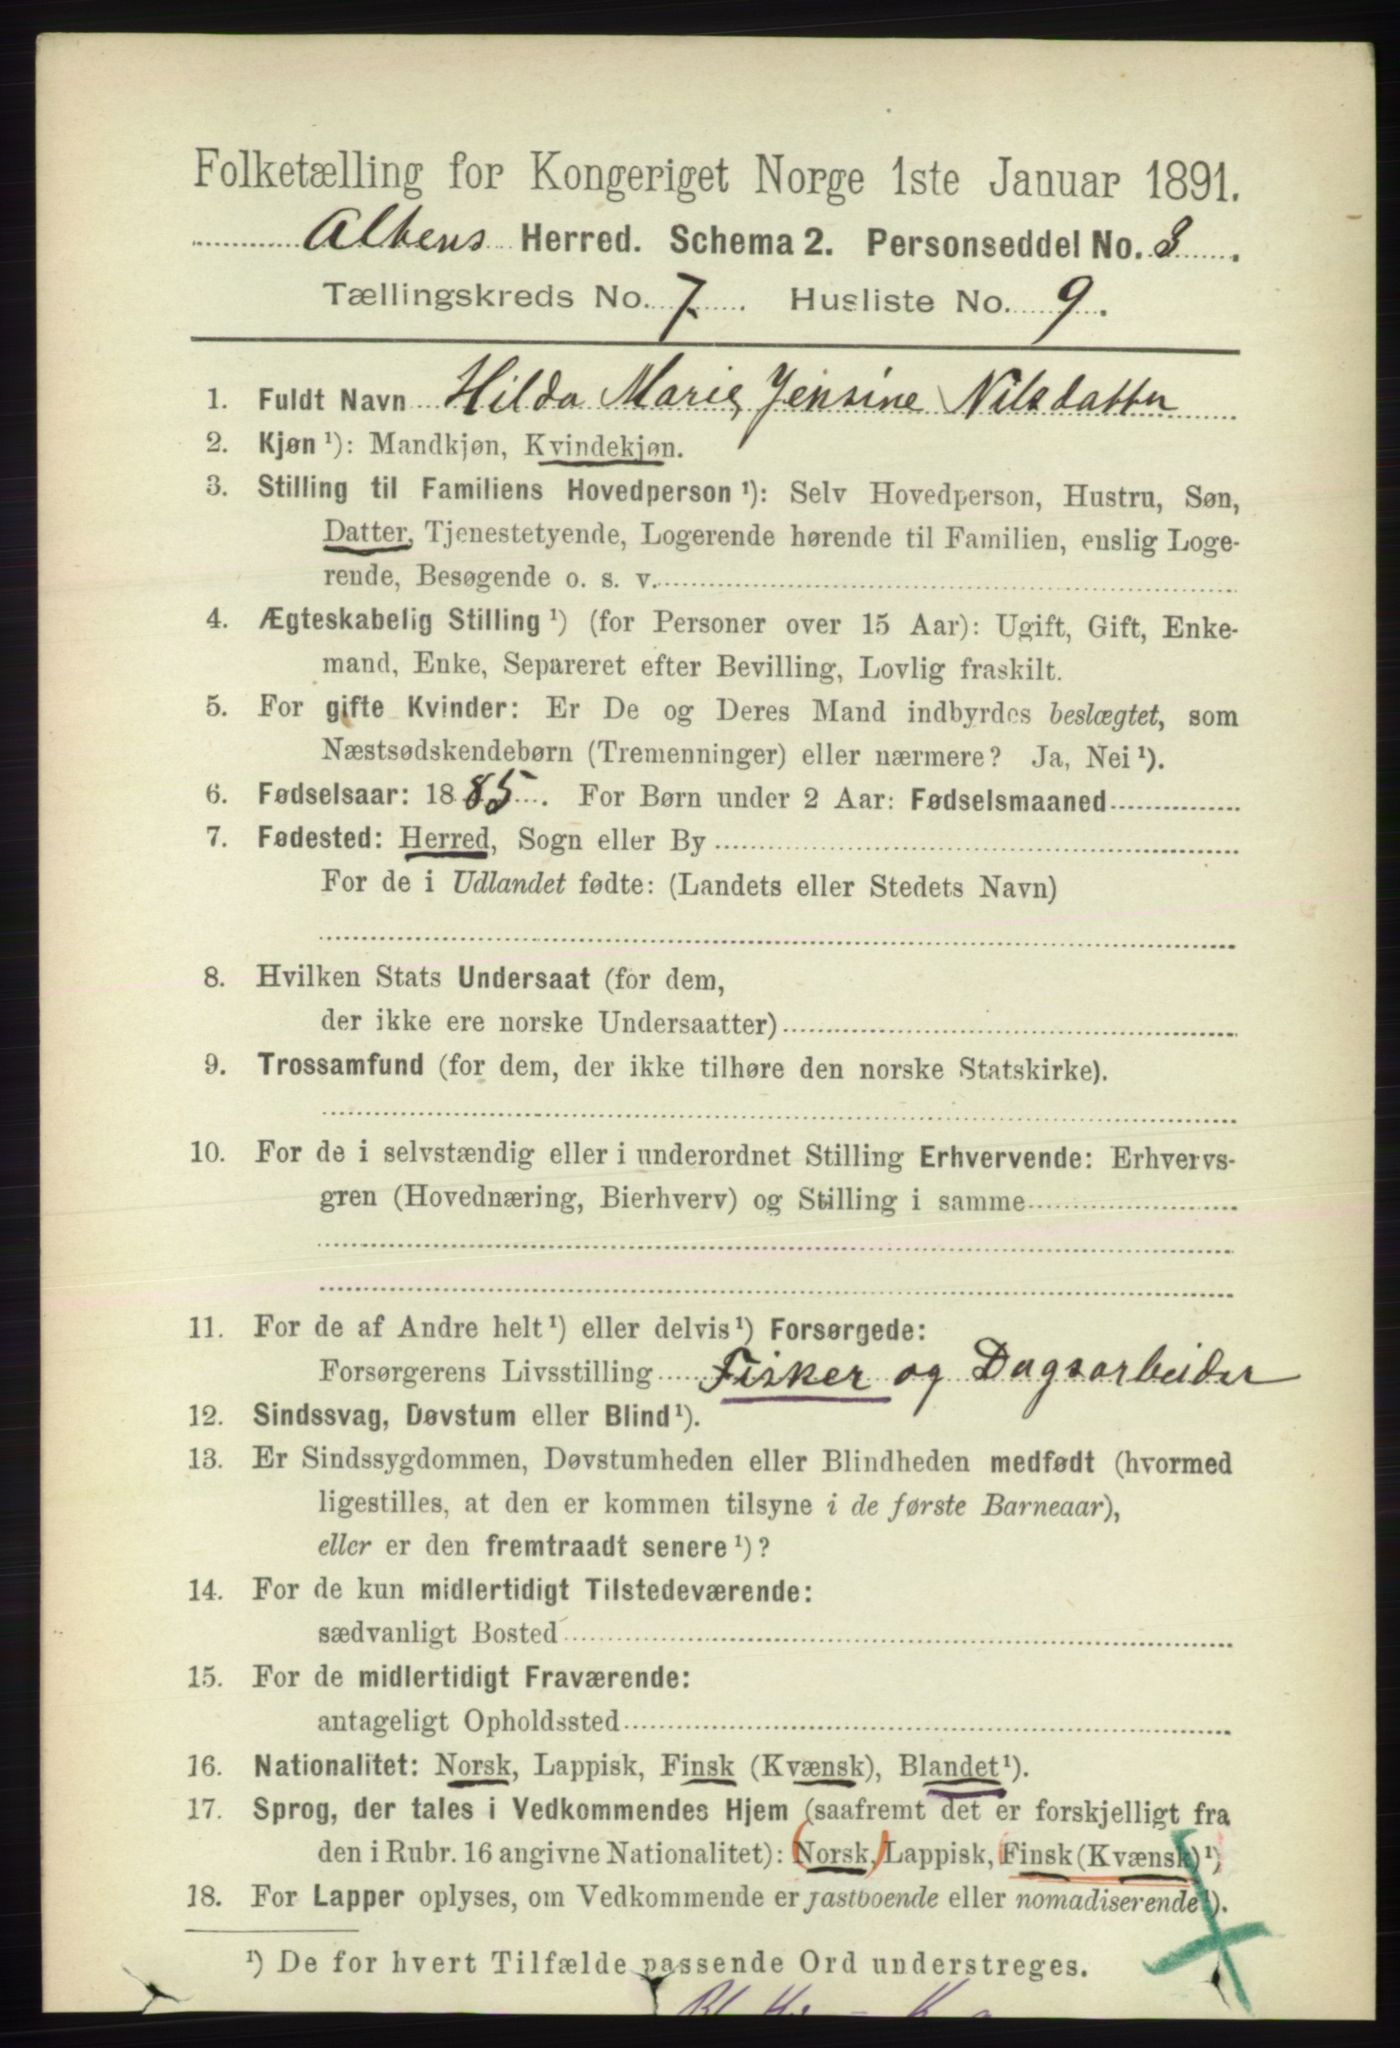 Folketælling for Kongeriget Norge 1ste Januar 1891.
Altens Herred. Schema 2. Personseddel No. 3.
Tællingskreds No. 7. Husliste No. 9.
1. Fuldt Navn Hilda Marie Jensine Nilsdatter
2. Kjøn ¹): Mandkjøn, Kvindekjøn.
3. Stilling til Familiens Hovedperson ¹): Selv Hovedperson, Hustru, Søn,
Datter, Tjenestetyende, Logerende hørende til Familien, enslig Loge-
rende, Besøgende o. s. v.
4. Ægteskabelig Stilling ¹) (for Personer over 15 Aar): Ugift, Gift, Enke-
mand, Enke, Separeret efter Bevilling, Lovlig fraskilt.
5. For gifte Kvinder: Er De og Deres Mand indbyrdes beslægtet, som
Næstsødskendebørn (Tremenninger) eller nærmere? Ja, Nei ¹).
6. Fødselsaar: 1885. For Børn under 2 Aar: Fødselsmaaned
7. Fødested: Herred, Sogn eller By
For de i Udlandet fødte: (Landets eller Stedets Navn)
8. Hvilken Stats Undersaat (for dem,
der ikke ere norske Undersaatter)
9. Trossamfund (for dem, der ikke tilhøre den norske Statskirke).
10. For de i selvstændig eller i underordnet Stilling Erhvervende: Erhvervs-
gren (Hovednæring, Bierhverv) og Stilling i samme
11. For de af Andre helt ¹) eller delvis ¹) Forsørgede:
Forsørgerens Livsstilling Fisker og Dagsarbeider
12. Sindssvag, Døvstum eller Blind ¹).
13. Er Sindssygdommen, Døvstumheden eller Blindheden medfødt (hvormed
ligestilles, at den er kommen tilsyne i de første Barneaar),
eller er den fremtraadt senere ¹)?
14. For de kun midlertidigt Tilstedeværende:
sædvanligt Bosted
15. For de midlertidigt Fraværende:
antageligt Opholdssted
16. Nationalitet: Norsk, Lappisk, Finsk (Kvænsk), Blandet ¹).
17. Sprog, der tales i Vedkommendes Hjem (saafremt det er forskjelligt fra
den i Rubr. 16 angivne Nationalitet): Norsk, Lappisk, Finsk (Kvænsk) ¹)
18. For Lapper oplyses, om Vedkommende er fastboende eller nomadiserende ¹).
¹) De for hvert Tilfælde passende Ord understreges.